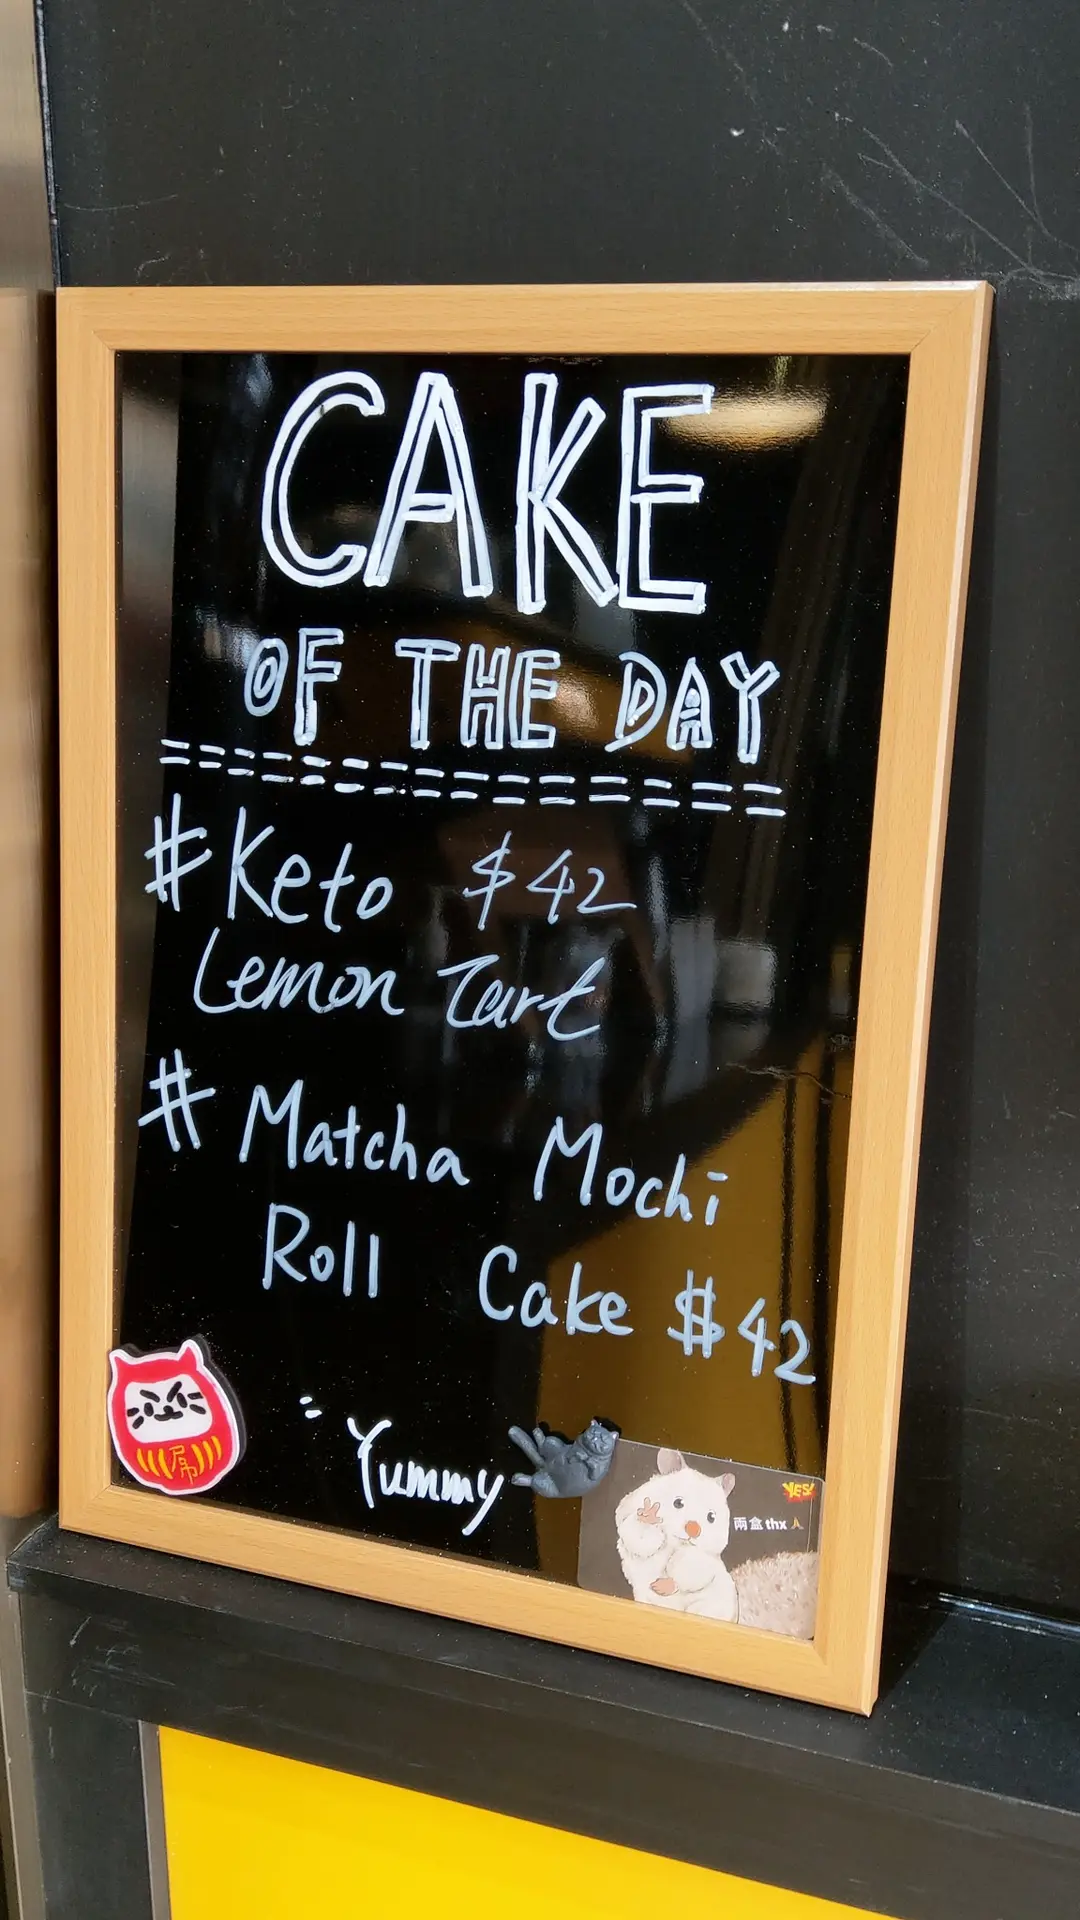 CAKE
OF THE DAY
# Keto $42
Lemon Tart
# Matcha Mochi
Roll Cake $42
Yummy
YES!
兩盒 thx 🙏